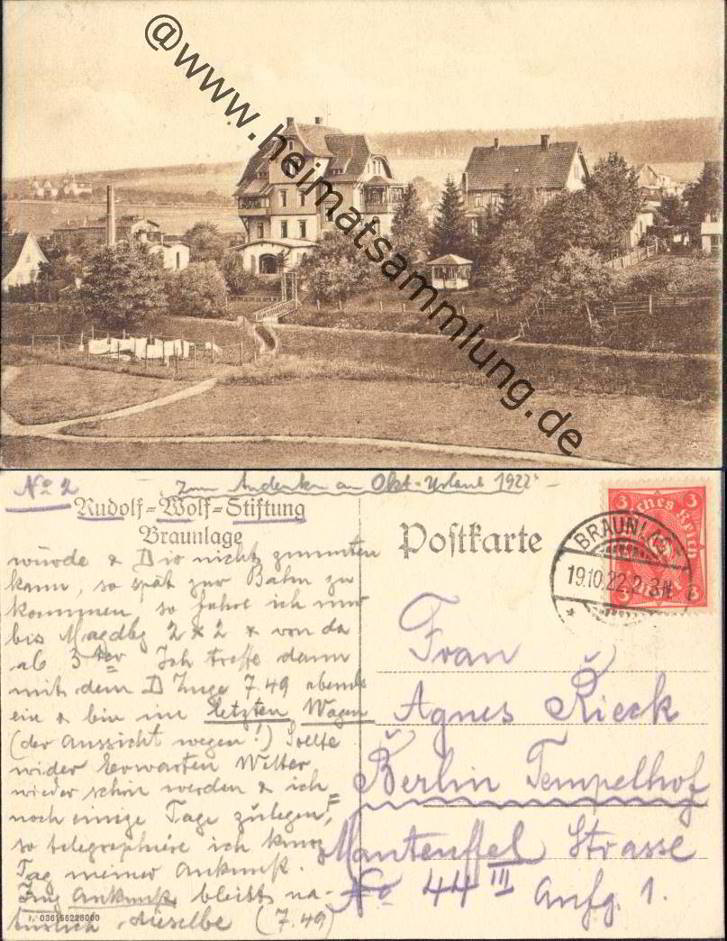 @www.heimatsammlung.de
No 2 - Zum Andenken an Okt-Urlaub 1922 -
Rudolf=Wolf=Stiftung
Braunlage
Postkarte
3 3
Deutsches Reich
BRAUNLAGE
19.10.22. 2-3N
würde & Dir nicht zumuten
kann, so spät zur Bahn zu
kommen, so fahre ich nur
bis Magdbg 2 x 2 & von da
ab 3ter Ich treffe dann
mit dem D Zuge 7.49 abends
ein & bin im letzten Wagen
(der Aussicht wegen!) Sollte
wider Erwarten Wetter
wieder schön werden & ich
noch einige Tage zulegen,
so telegraphiere ich kurz
Tag meiner Ankunft.
Zug Ankunft bleibt na=
türlich dieselbe (7.49)
Frau
Agnes Rieck
Berlin Tempelhof
Manteuffel Strasse
No 44 III Aufg. 1.